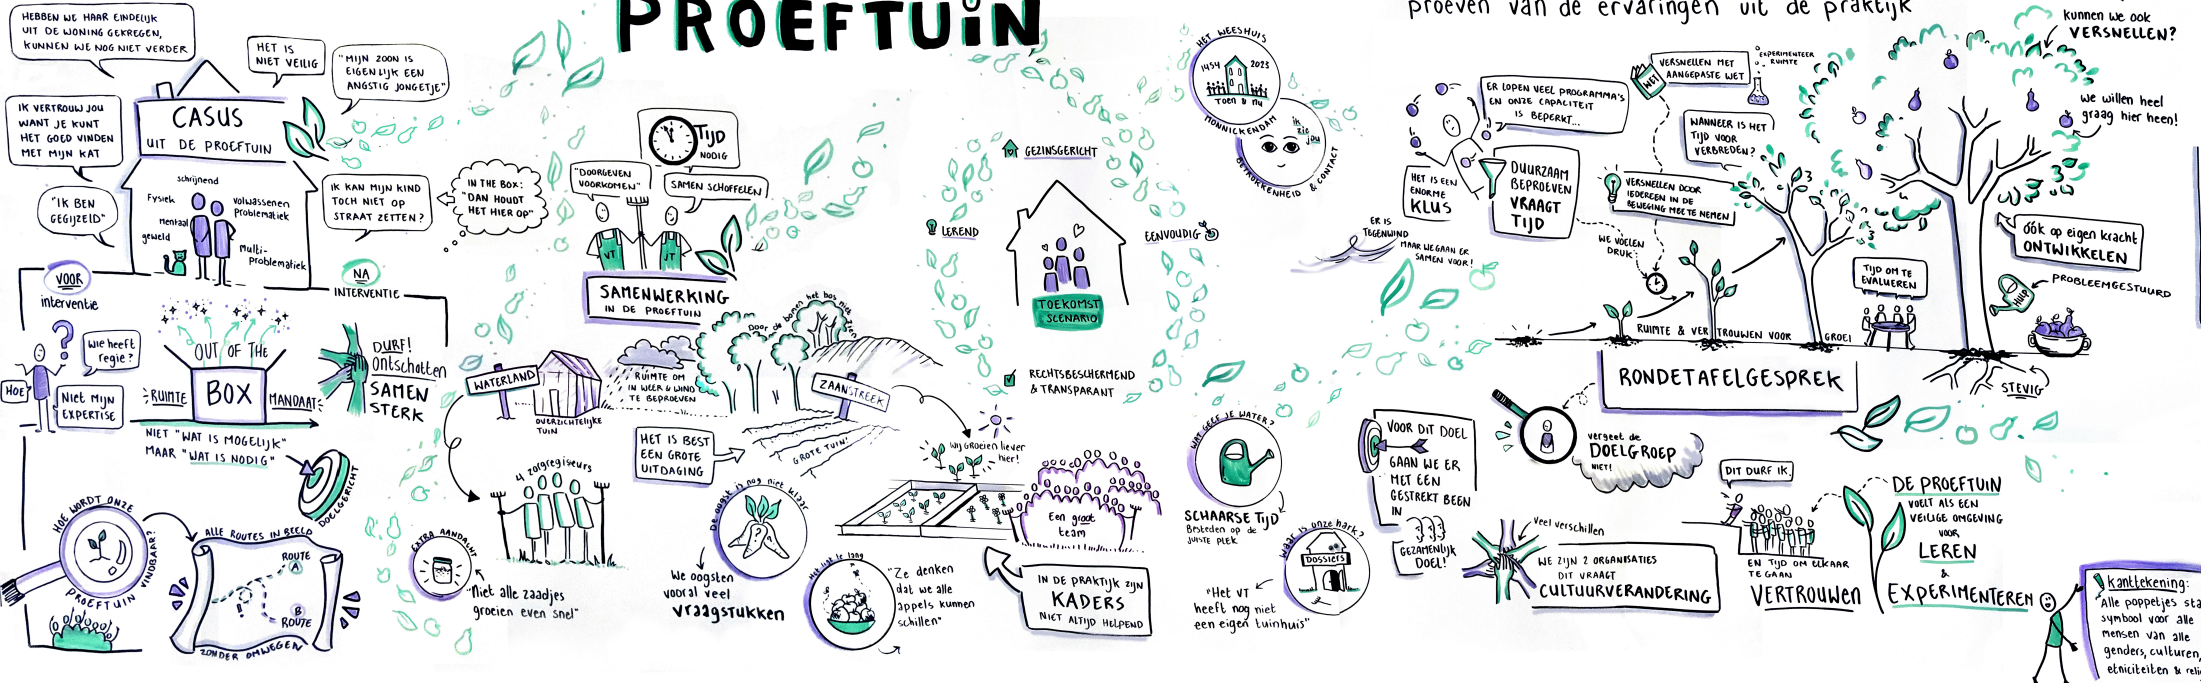 PROEFTUIN
proeven van de ervaringen uit de praktijk
HEBBEN WE HAAR EINDELIJK
UIT DE WONING GEKREGEN,
KUNNEN WE NOG NIET VERDER
HET IS
NIET VEILIG
"MIJN ZOON IS
EIGENLIJK EEN
ANGSTIG JONGETJE"
IK VERTROUW JOU
WANT JE KUNT
HET GOED VINDEN
MET MIJN KAT
CASUS
UIT DE PROEFTUIN
"IK BEN
GEGIJZELD"
schrijnend
Fysiek
Mentaal
geweld
volwassenen
problematiek
multi-
problematiek
IK KAN MIJN KIND
TOCH NIET OP
STRAAT ZETTEN?
IN THE BOX:
"DAN HOUDT
HET HIER OP"
VOOR
interventie
NA
INTERVENTIE
wie heeft
regie?
HOE
NIET MIJN
EXPERTISE
OUT OF THE
BOX
RUIMTE
MANDAAT
DURF!
Ontschotten
SAMEN
STERK
NIET "WAT IS MOGELIJK"
MAAR "WAT IS NODIG"
DOELGERICHT
HOE WORDT ONZE
PROEFTUIN VINDBAAR?
ALLE ROUTES IN BEELD
ROUTE
A
B
ROUTE
ZONDER OMWEGEN
TIJD
NODIG
"DOORGEVEN
VOORKOMEN"
SAMEN SCHOFFELEN
VT
VT
SAMENWERKING
IN DE PROEFTUIN
WATERLAND
OVERZICHTELIJKE
TUIN
RUIMTE OM
IN WEER & WIND
TE BEPROEVEN
Door de bomen het bos niet zien
ZAANSTREEK
GROTE TUIN!
HET IS BEST
EEN GROTE
UITDAGING
4 zorgregiseurs
EXTRA AANDACHT
"Niet alle zaadjes
groeien even snel"
De oogst is nog niet klaar
We oogsten
vooral veel
vraagstukken
Het ligt te lang
"Ze denken
dat we alle
appels kunnen
schillen"
Wij groeien liever
hier!
Een groot
team
IN DE PRAKTIJK ZIJN
KADERS
NIET ALTIJD HELPEND
GEZINSGERICHT
LEREND
EENVOUDIG
TOEKOMST
SCENARIO
RECHTSBESCHERMEND
& TRANSPARANT
HET WEESHUIS
1454
2023
Toen & nu
MONNICKENDAM
ik
zie
jou
BETROKKENHEID & CONTACT
ER IS
TEGENWIND
MAAR WE GAAN ER
SAMEN VOOR!
WAT GEEF JE WATER?
SCHAARSE TIJD
Besteden op de
JUISTE PLEK
waar is onze hark?
DOSSIERS
"Het VT
heeft nog niet
een eigen tuinhuis"
VOOR DIT DOEL
GAAN WE ER
MET EEN
GESTREKT BEEN
IN
GEZAMENLIJK
DOEL!
ER LOPEN VEEL PROGRAMMA'S
EN ONZE CAPACITEIT
IS BEPERKT...
HET IS EEN
ENORME
KLUS
DUURZAAM
BEPROEVEN
VRAAGT
TIJD
WET
VERSNELLEN MET
AANGEPASTE WET
EXPERIMENTEER
RUIMTE
WANNEER IS HET
TIJD VOOR
VERBREDEN?
VERSNELLEN DOOR
IEDEREEN IN DE
BEWEGING MEE TE NEMEN
WE VOELEN
DRUK
RUIMTE & VERTROUWEN VOOR GROEI
TIJD OM TE
EVALUEREN
kunnen we ook
VERSNELLEN?
we willen heel
graag hier heen!
óók op eigen kracht
ONTWIKKELEN
HULP
PROBLEEMGESTUURD
STEVIG
RONDETAFELGESPREK
vergeet de
DOELGROEP
NIET!
Veel verschillen
WE ZIJN 2 ORGANISATIES
DIT VRAAGT
CULTUURVERANDERING
DIT DURF IK
EN TIJD OM ELKAAR
TE GAAN
VERTROUWEN
DE PROEFTUIN
VOELT ALS EEN
VEILIGE OMGEVING
VOOR
LEREN
&
EXPERIMENTEREN
! kanttekening:
Alle poppetjes sta
symbool voor alle
mensen van alle
genders, culturen,
etniciteiten & reli